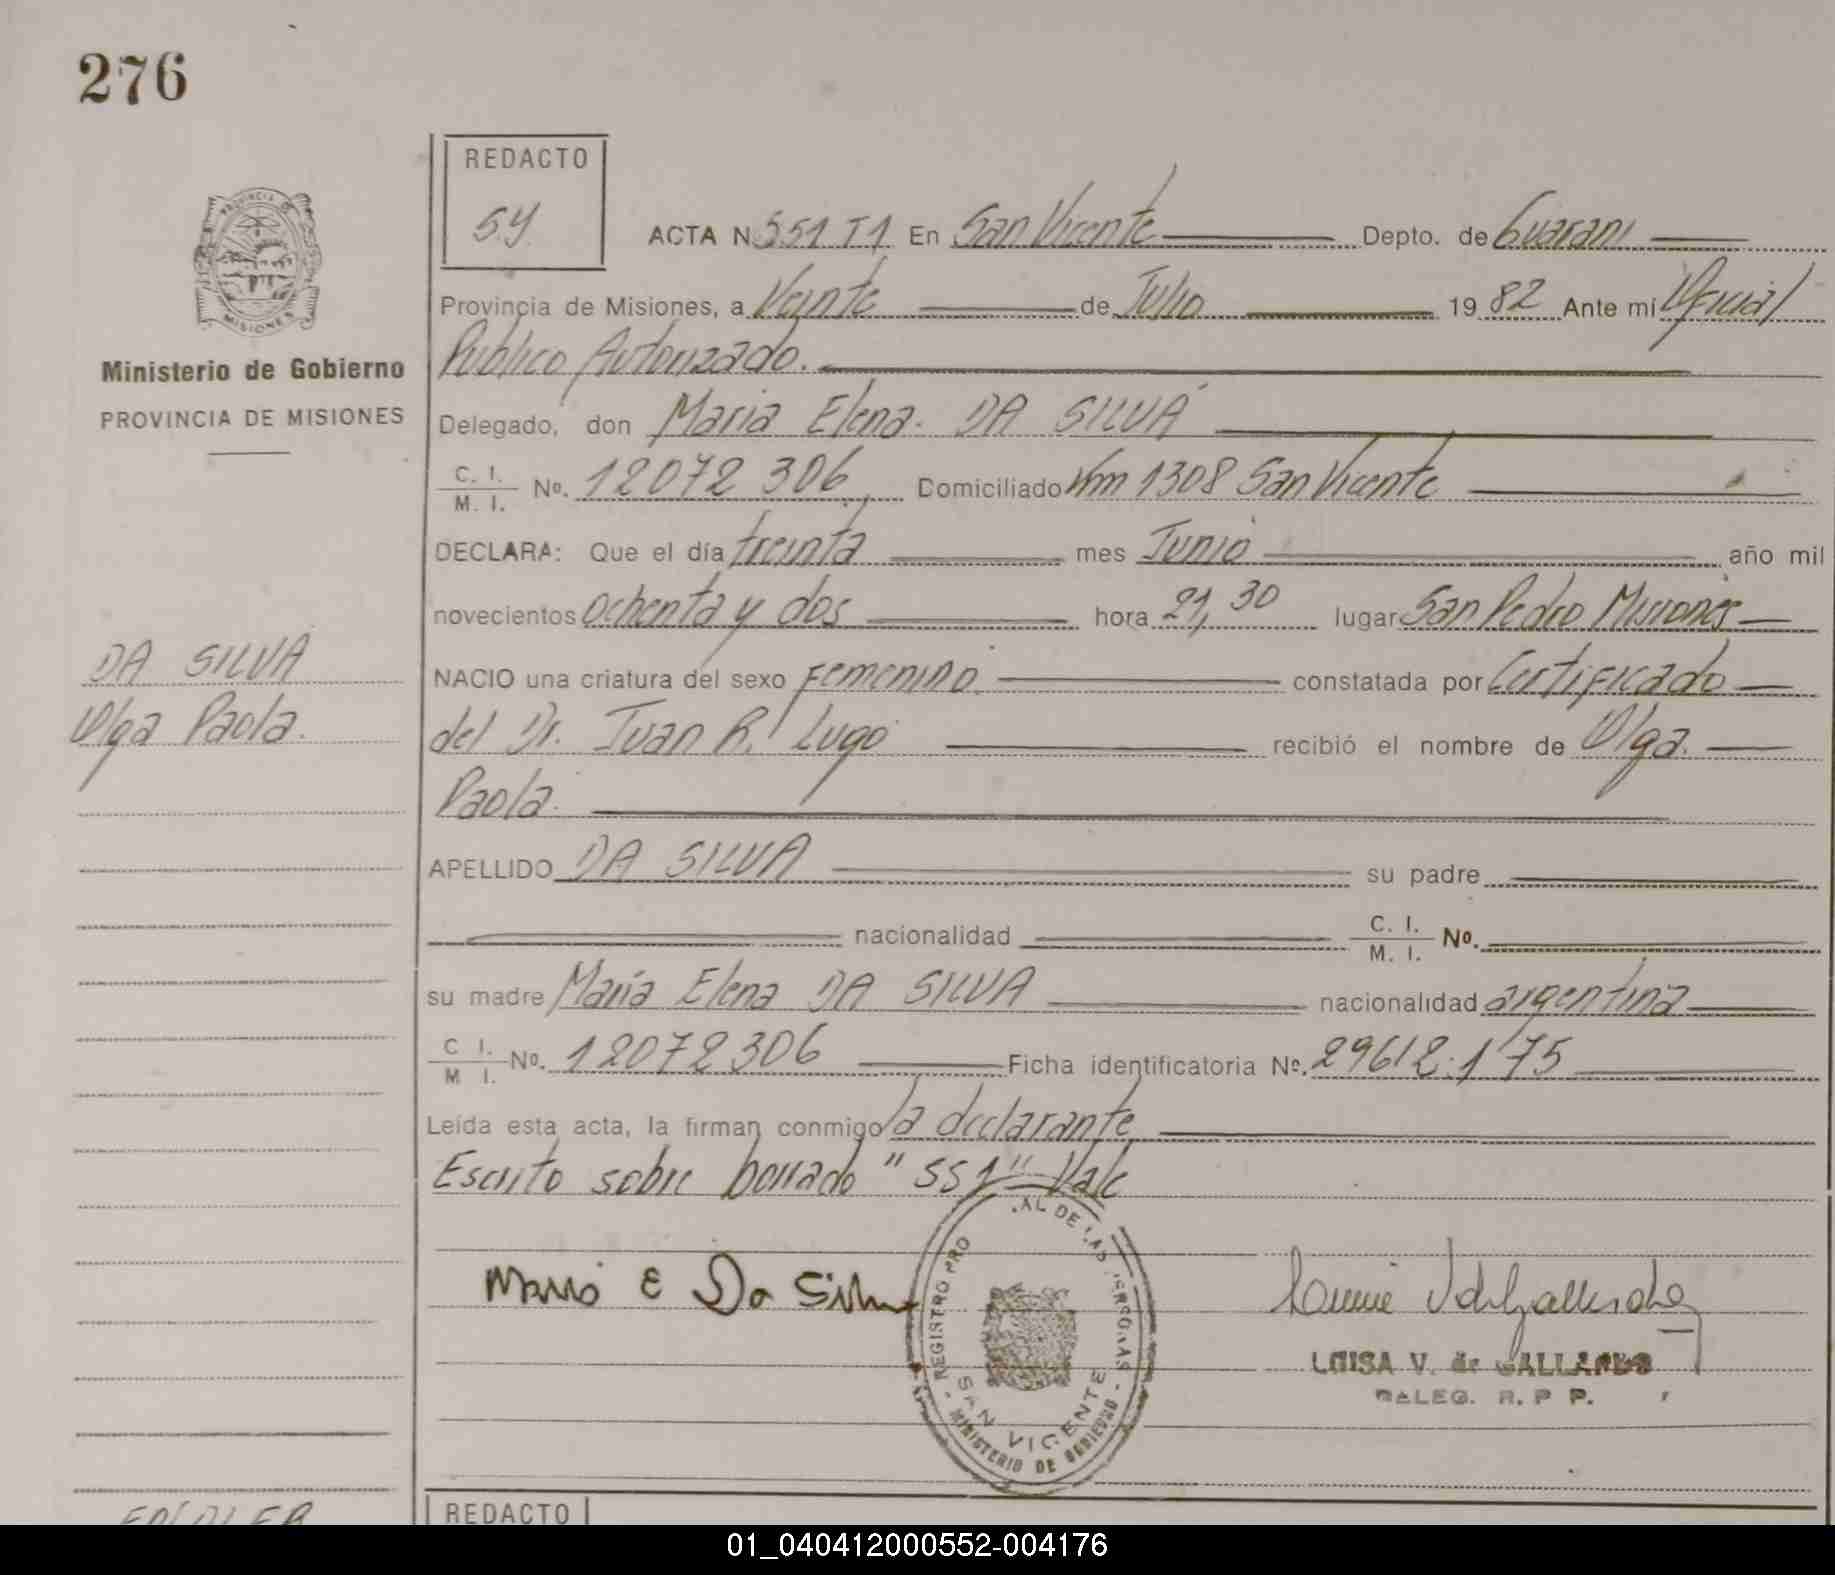 276
REDACTO
S.Y.
ACTA N 551 T1 En San Vicente Depto. de Guarani
PROVINCIA DE
MISIONES
Provincia de Misiones, a Veinte de Julio 1982 Ante mí Oficial
Público Autorizado.
Ministerio de Gobierno
PROVINCIA DE MISIONES
Delegado, don Maria Elena. DA SILVA
C. I.
M. I. Nº. 12072 306, Domiciliado Km 1308 San Vicente
DECLARA: Que el día treinta mes Junio año mil
novecientos ochenta y dos hora 21,30 lugar San Pedro Misiones
DA SILVA
Olga Paola.
NACIO una criatura del sexo Femenino. constatada por Certificado
del Dr. Juan R. Lugo recibió el nombre de Olga.
Paola.
APELLIDO DA SILVA su padre
nacionalidad C. I.
M. I. Nº.
su madre María Elena DA SILVA nacionalidad argentina
C I.
M I. Nº. 12072306 Ficha identificatoria Nº. 29612.1'75
Leída esta acta, la firman conmigo la declarante
Escrito sobre borrado "551" Vale
Maria E Da Silva
REGISTRO PRO AL DE LAS PERSONAS
SAN VICENTE
MINISTERIO DE GOBIERNO
LUISA V. de GALLARDO
DELEG. R. P P.
REDACTO
01_040412000552-004176